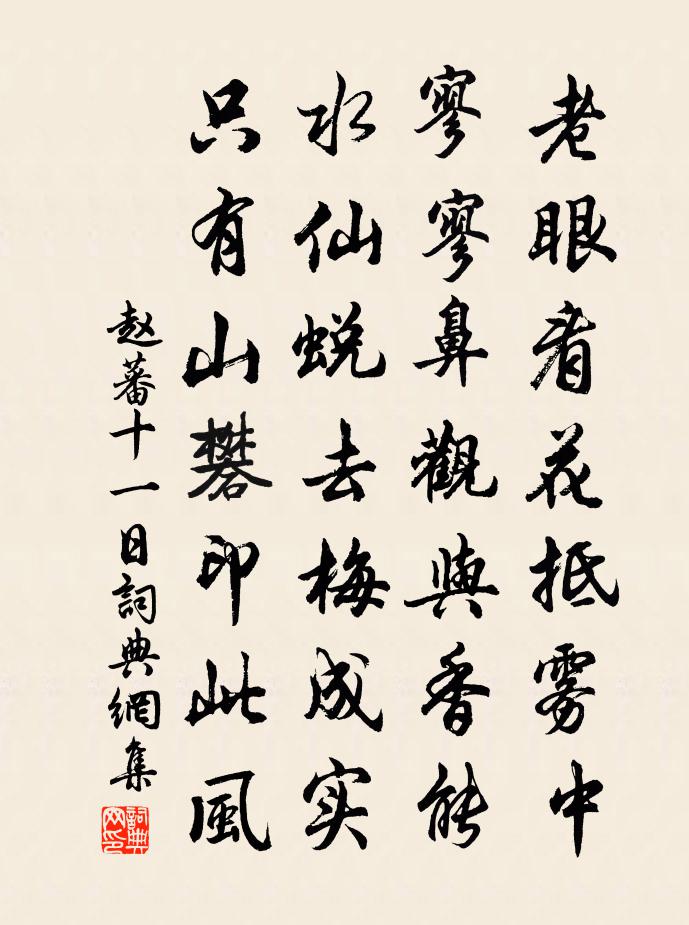 老眼看花抵雾中
寥寥鼻觀與香能
水仙蜕去梅成实
只有山礬印此風
赵蕃十一日詞典網集
詞典
网印